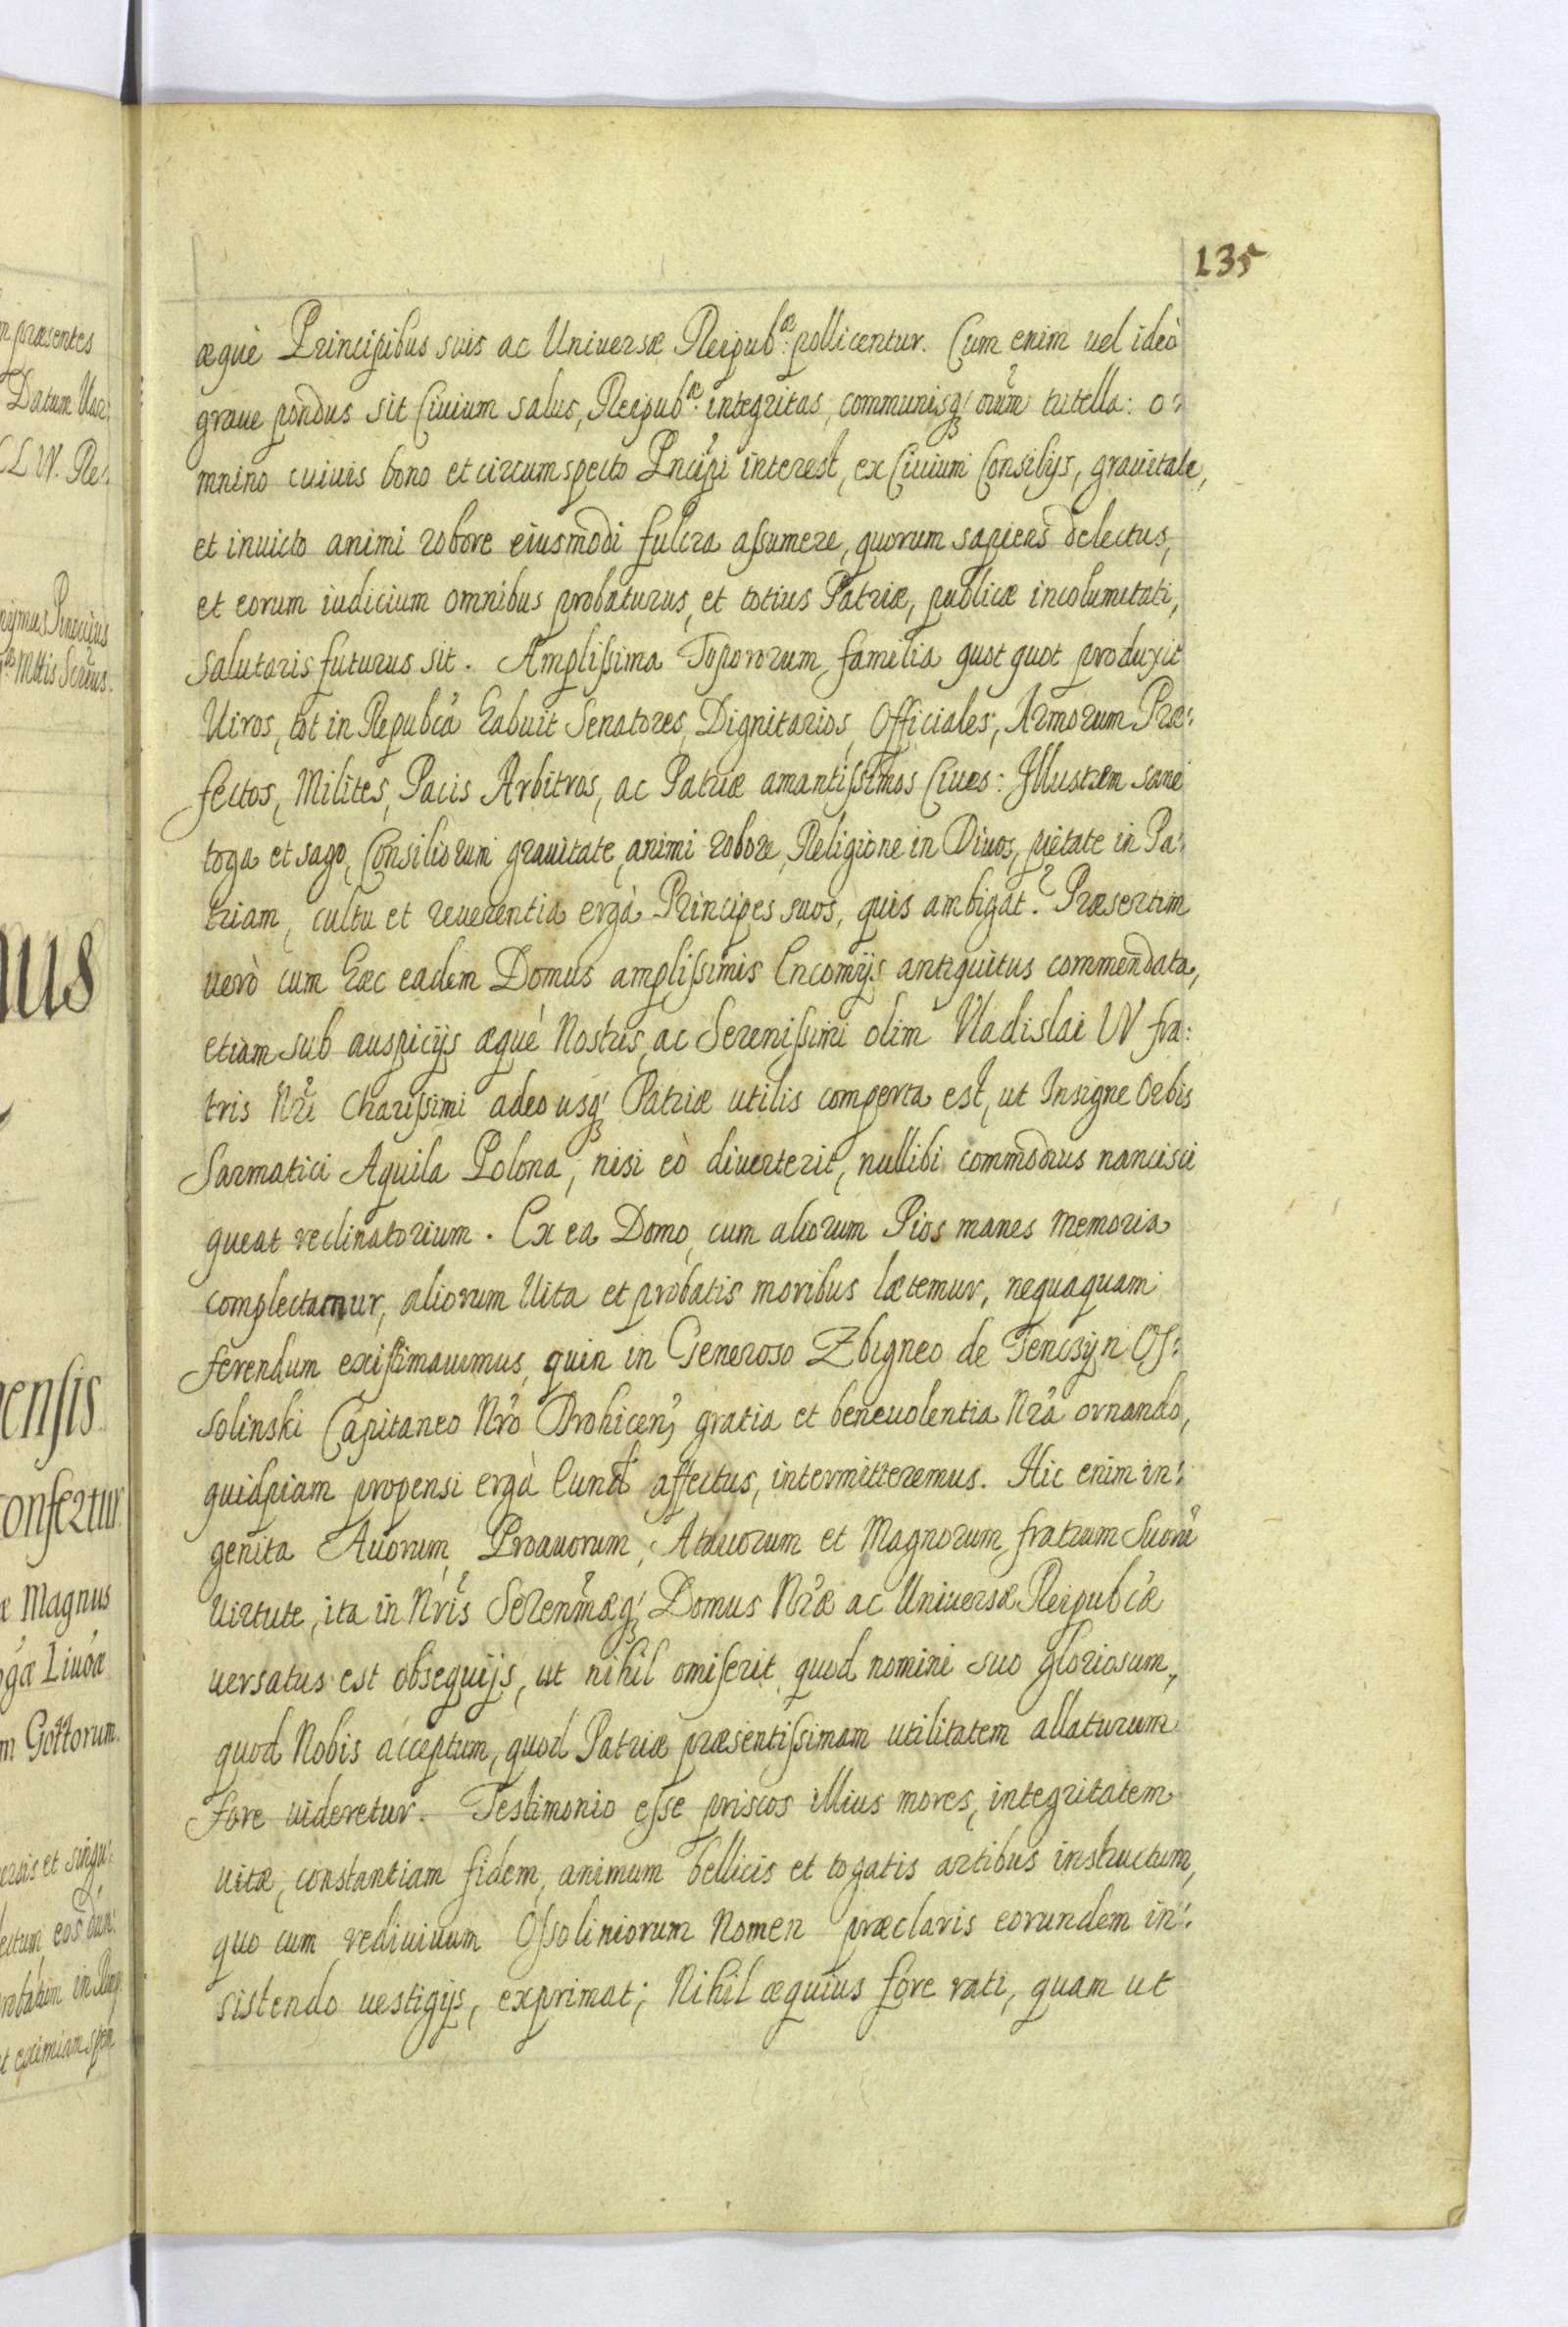 135
æquè Principibus suis ac Universæ Reipub:æ pollicentur. Cum enim uel ideò
graue pondus sit Ciuium salus, Reipub:æ integritas, communisq; oium̃ tutella: o:
mnino cuiuis bono et circumspecto Pncipi interest, ex Ciuium Consilijs, grauitate,
et inuicto animi robore eiusmodi fulcra aſsumere, quorum sapiens delectus,
et eorum iudicium omnibus probaturus, et totius Patriæ, publicæ incolumitati,
salutaris futurus sit. Ampliſsima Topororum familia quot quot produxit
Uiros, tot in Repubca habuit Senatores, Dignitarios, Officiales, Armorum Præ:
fectos, Milites, Pacis Arbitros, ac Patriæ amantiſsimos Ciues: Illustrem sane
toga et sago, Consiliorum grauitate, animi robore, Religione in Diuos, pietate in Pa:
triam, cultu et reuerentia ergà Principes suos, quis ambigat? Præsertim
uerò cum hæc eadem Domus ampliſsimis Encomijs antiquitus commendata,
etiam sub auspicijs æquè Nostris, ac Sereniſsimi olim Vladislai IV fra:
tris Nri Chariſsimi adeo usq; Patriæ utilis comperta est, ut Insigne Orbis
Sarmatici Aquila Polona, nisi eò diuerterit, nullibi commodius nancisci
queat reclinatorium. Ex ea Domo, cum aliorum Pios manes memoria
complectamur, aliorum Uita et probatis moribus lætemur, nequaquam
ferendum existimauimus, quin in Generoso Zbigneo de Tenczyn Oſ:
solinski Capitaneo Nro Drohicen, gratia et beneuolentia Nra ornando,
quidpiam propensi ergà Eund affectus, intermitteremus. Hic enim in:
genita Auorum, Proauorum, Atauorum et Magnorum fratrum Suorũ
Uirtute, ita in Nris Serenmæq; Domus Nræ ac Universæ Reipubcæ
uersatus est obsequijs, ut nihil omiserit, quod nomini suo gloriosum,
quod Nobis acceptum, quod Patriæ præsentiſsimam utilitatem allaturum
fore uideretur. Testimonio eſse priscos illius mores, integritatem
uitæ, constantiam fidem, animum bellicis et togatis artibus instructum,
quo cum rediuiuum Oſsoliniorum Nomen præclaris eorundem in:
sistendo uestigijs, exprimat; Nihil æquius fore rati, quam ut
præsentes
Datum Uar:
Magnus
Gottorum
et singu: